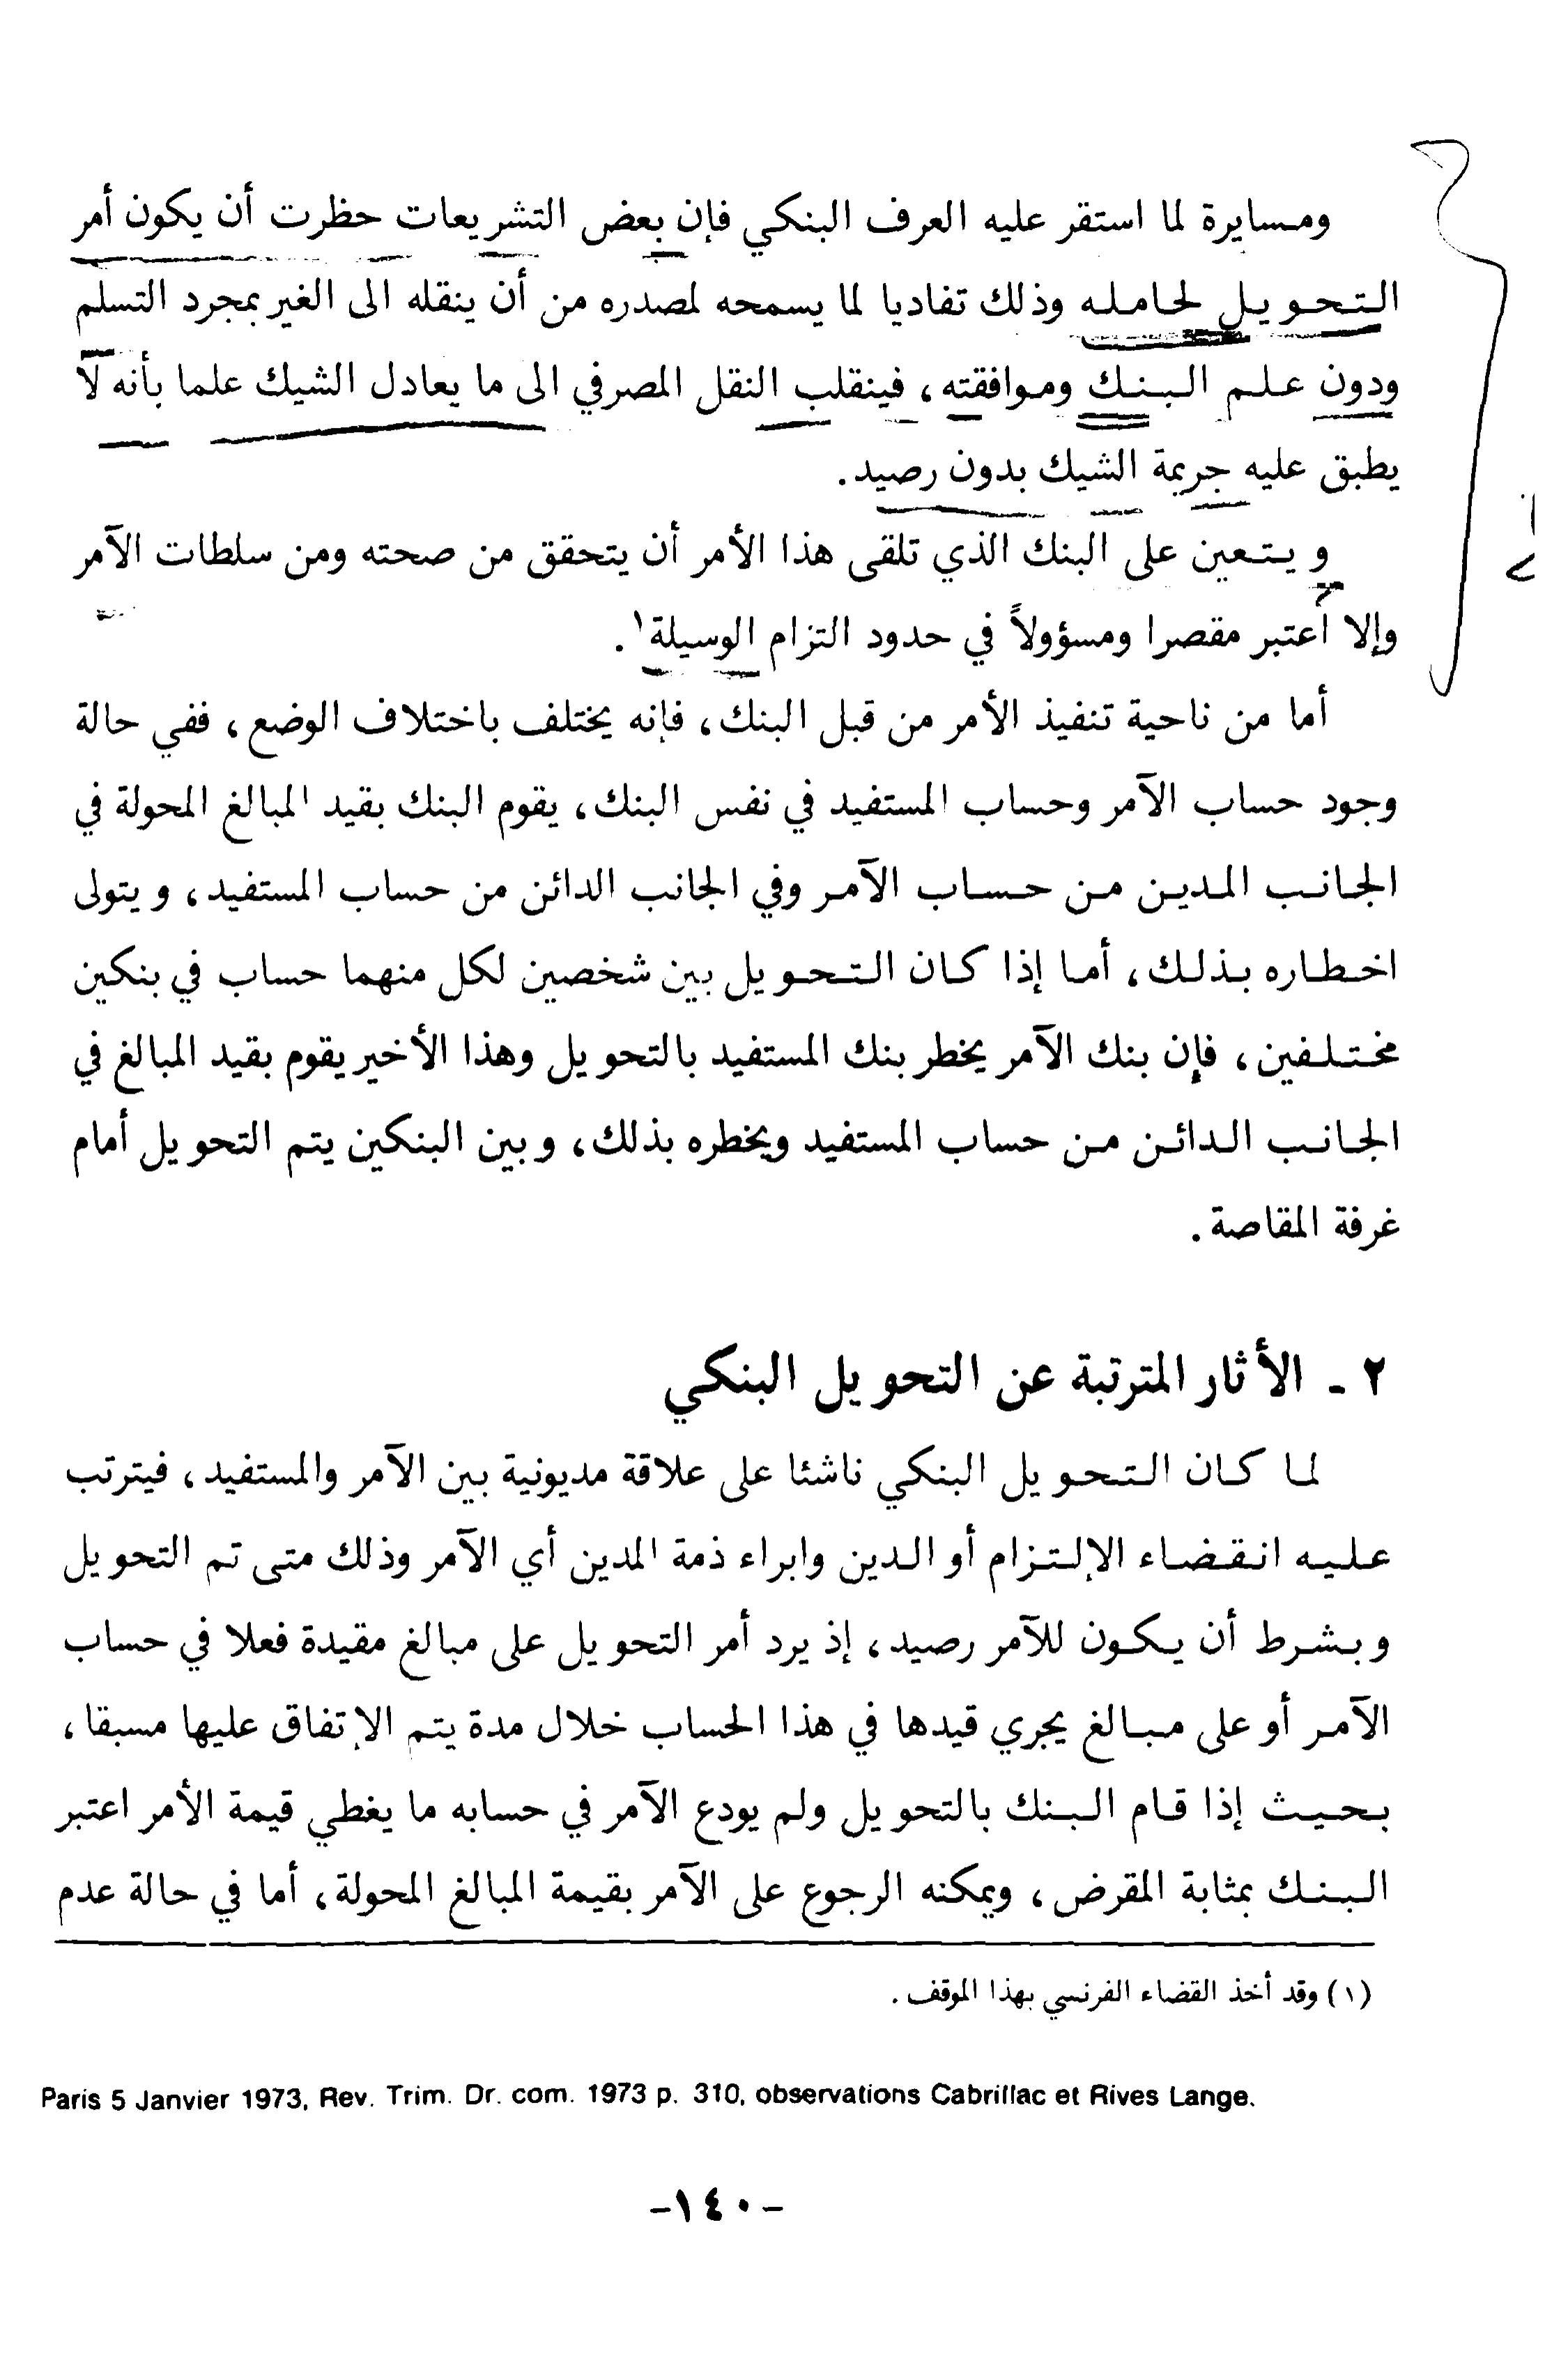 ومسايرة لما استقر عليه العرف البنكي فإن بعض التشريعات حظرت أن يكون أمر
التحويل لحامله وذلك تفاديا لما يسمحه لمصدره من أن ينقله الى الغير بمجرد التسلم
ودون علم البنك وموافقته، فينقلب النقل المصرفي الى ما يعادل الشيك علما بأنه لا
يطبق عليه جريمة الشيك بدون رصيد.
ويتعين على البنك الذي تلقى هذا الأمر أن يتحقق من صحته ومن سلطات الآمر
وإلا أعتبر مقصرا ومسؤولاً في حدود التزام الوسيلة١.
أما من ناحية تنفيذ الأمر من قبل البنك، فإنه يختلف باختلاف الوضع، ففي حالة
وجود حساب الآمر وحساب المستفيد في نفس البنك، يقوم البنك بقيد المبالغ المحولة في
الجانب المدين من حساب الآمر وفي الجانب الدائن من حساب المستفيد، ويتولى
اخطاره بذلك، أما إذا كان التحويل بين شخصين لكل منهما حساب في بنكين
مختلفين، فإن بنك الآمر يخطر بنك المستفيد بالتحويل وهذا الأخير يقوم بقيد المبالغ في
الجانب الدائن من حساب المستفيد ويخطره بذلك، وبين البنكين يتم التحويل أمام
غرفة المقاصة.
٢ - الأثار المترتبة عن التحويل البنكي
لما كان التحويل البنكي ناشئا على علاقة مديونية بين الآمر والمستفيد، فيترتب
عليه انقضاء الإلتزام أو الدين وابراء ذمة المدين أي الآمر وذلك متى تم التحويل
وبشرط أن يكون للآمر رصيد، إذ يرد أمر التحويل على مبالغ مقيدة فعلا في حساب
الآمر أو على مبالغ يجري قيدها في هذا الحساب خلال مدة يتم الإتفاق عليها مسبقا،
بحيث إذا قام البنك بالتحويل ولم يودع الآمر في حسابه ما يغطي قيمة الأمر اعتبر
البنك بمثابة المقرض، ويمكنه الرجوع على الآمر بقيمة المبالغ المحولة، أما في حالة عدم
(١) وقد أخذ القضاء الفرنسي بهذا الموقف.
Paris 5 Janvier 1973, Rev. Trim. Dr. com. 1973 p. 310, observations Cabrillac et Rives Lange.
-١٤٠-